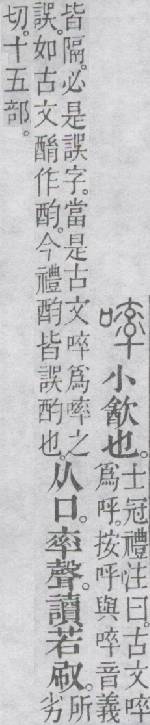 㗛小㱃也。士冠禮注曰。古文啐
爲呼。按呼與啐音義
皆隔。必是誤字。當是古文啐爲㗛之
誤。如古文酳作酌。今禮酌皆誤酌也。
从口。率聲。讀若㕞。所劣
切。十五部。